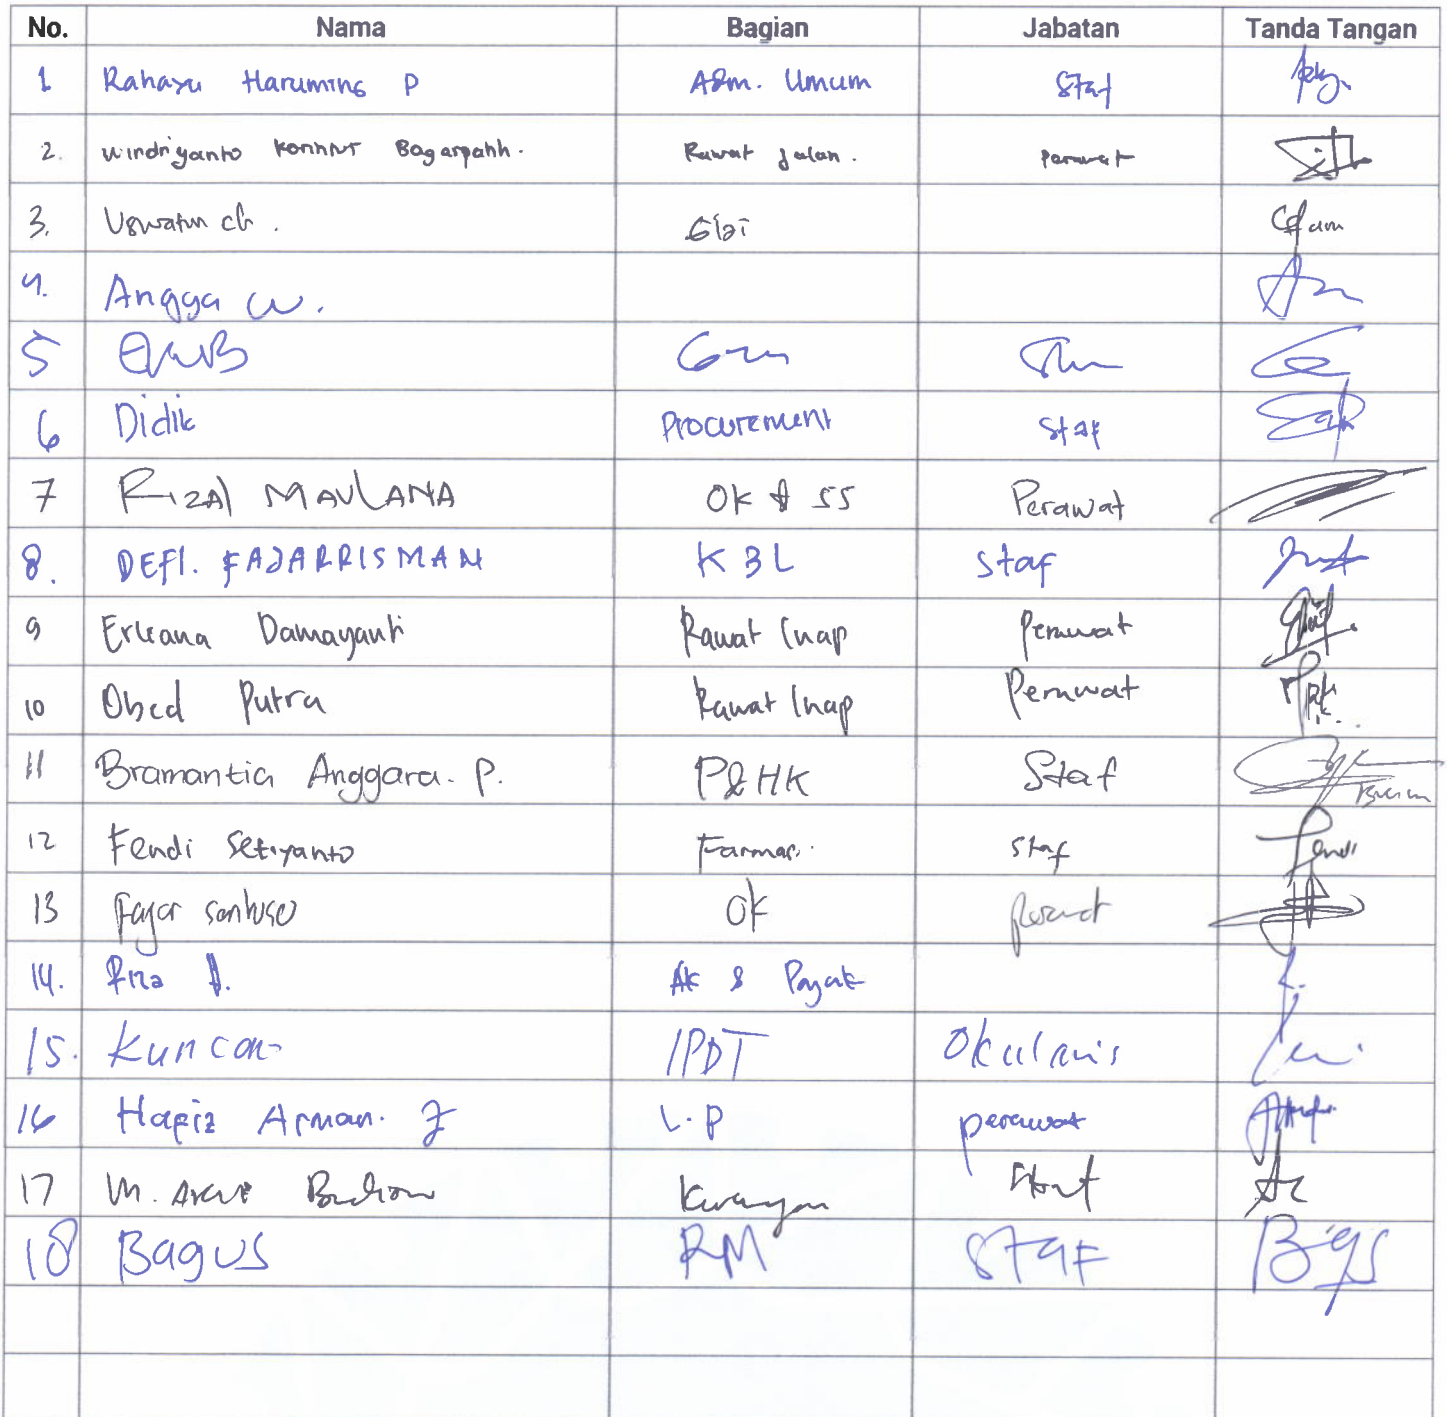 No. Nama Bagian Jabatan Tanda Tangan
1 Rahayu Haruming P Adm. Umum Staf
2. Windriyanto Rawat Jalan. perawat
3. Uswatun ch. Gizi
4. Angga W.
5
6 Didik Procurement Staf
7 Rizal MAULANA OK & SS Perawat
8. DEFI. FAJARRISMAN K3L Staf
9 Erleana Damayanti Rawat Inap Perawat
10 Obed Putra Rawat Inap Perawat
11 Bramantia Anggara. P. P&HK Staf
12 Fendi Setiyanto Farmasi Staf Fendi
13 Fajar Santoso OK perawat
14. Riza Ak & Pajak
15. Kuncoro IPDT Okularis
16 Hafiz Arman. Z L.P perawat
17 M. Staf
18 Bagus RM STAF